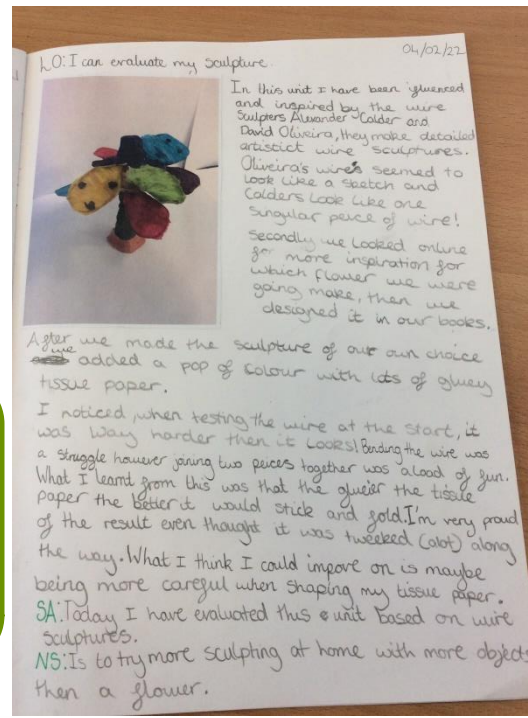 04/02/22
LO: I can evaluate my sculpture.
In this unit I have been ifluenced
and inspired by the wire
Sculpters Alexander Calder and
David Oliveira, they make detailed
artistict wire sculptures.
Oliveira's wire's seemed to
look like a sketch and
Calders look like one
singular peice of wire!
Secondly we looked online
for more inspiration for
which flower we were
going make, then we
designed it in our books.
After we made the sculpture of our own choice
we added a pop of colour with lots of gluey
tissue paper.
I noticed, when testing the wire at the start, it
was way harder then it looks! Bending the wire was
a struggle however joining two peices together was a load of fun.
What I learnt from this was that the glueier the tissue
paper the better it would stick and fold. I'm very proud
of the result even thought it was tweeked (alot) along
the way. What I think I could impove on is maybe
being more careful when shaping my tissue paper.
SA: Today I have evaluated this unit based on wire
sculptures.
NS: Is to try more sculpting at home with more objects
then a flower.